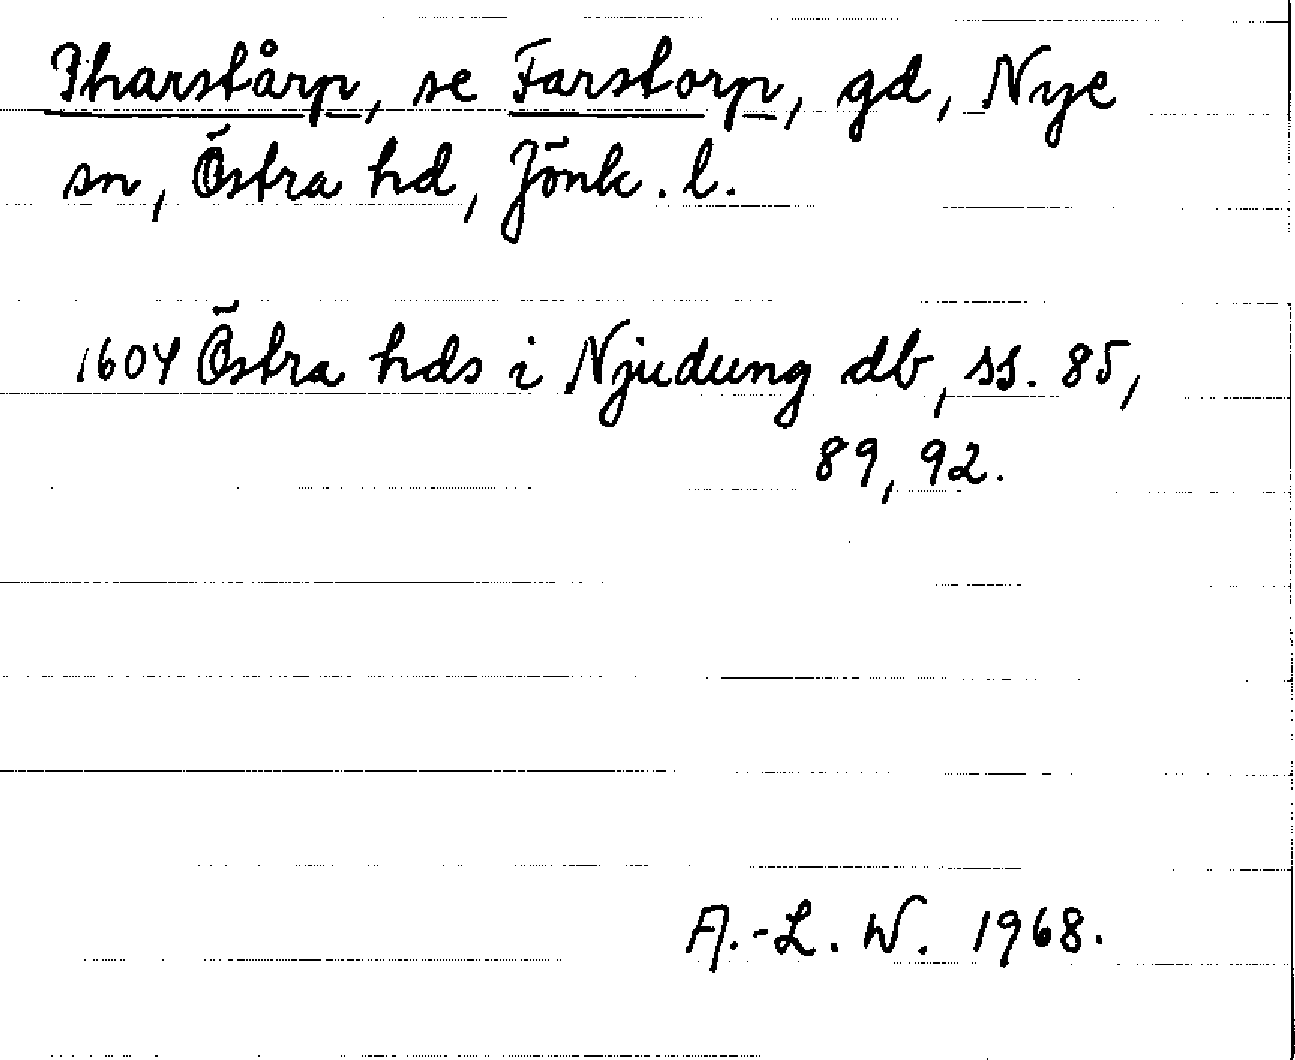 Tharstårp, se Farstorp, gd, Nye
sn, Östra hd, Jönk. l.
1604 Östra hds i Njudung db, ss. 85,
89, 92.
A.-L. W. 1968.